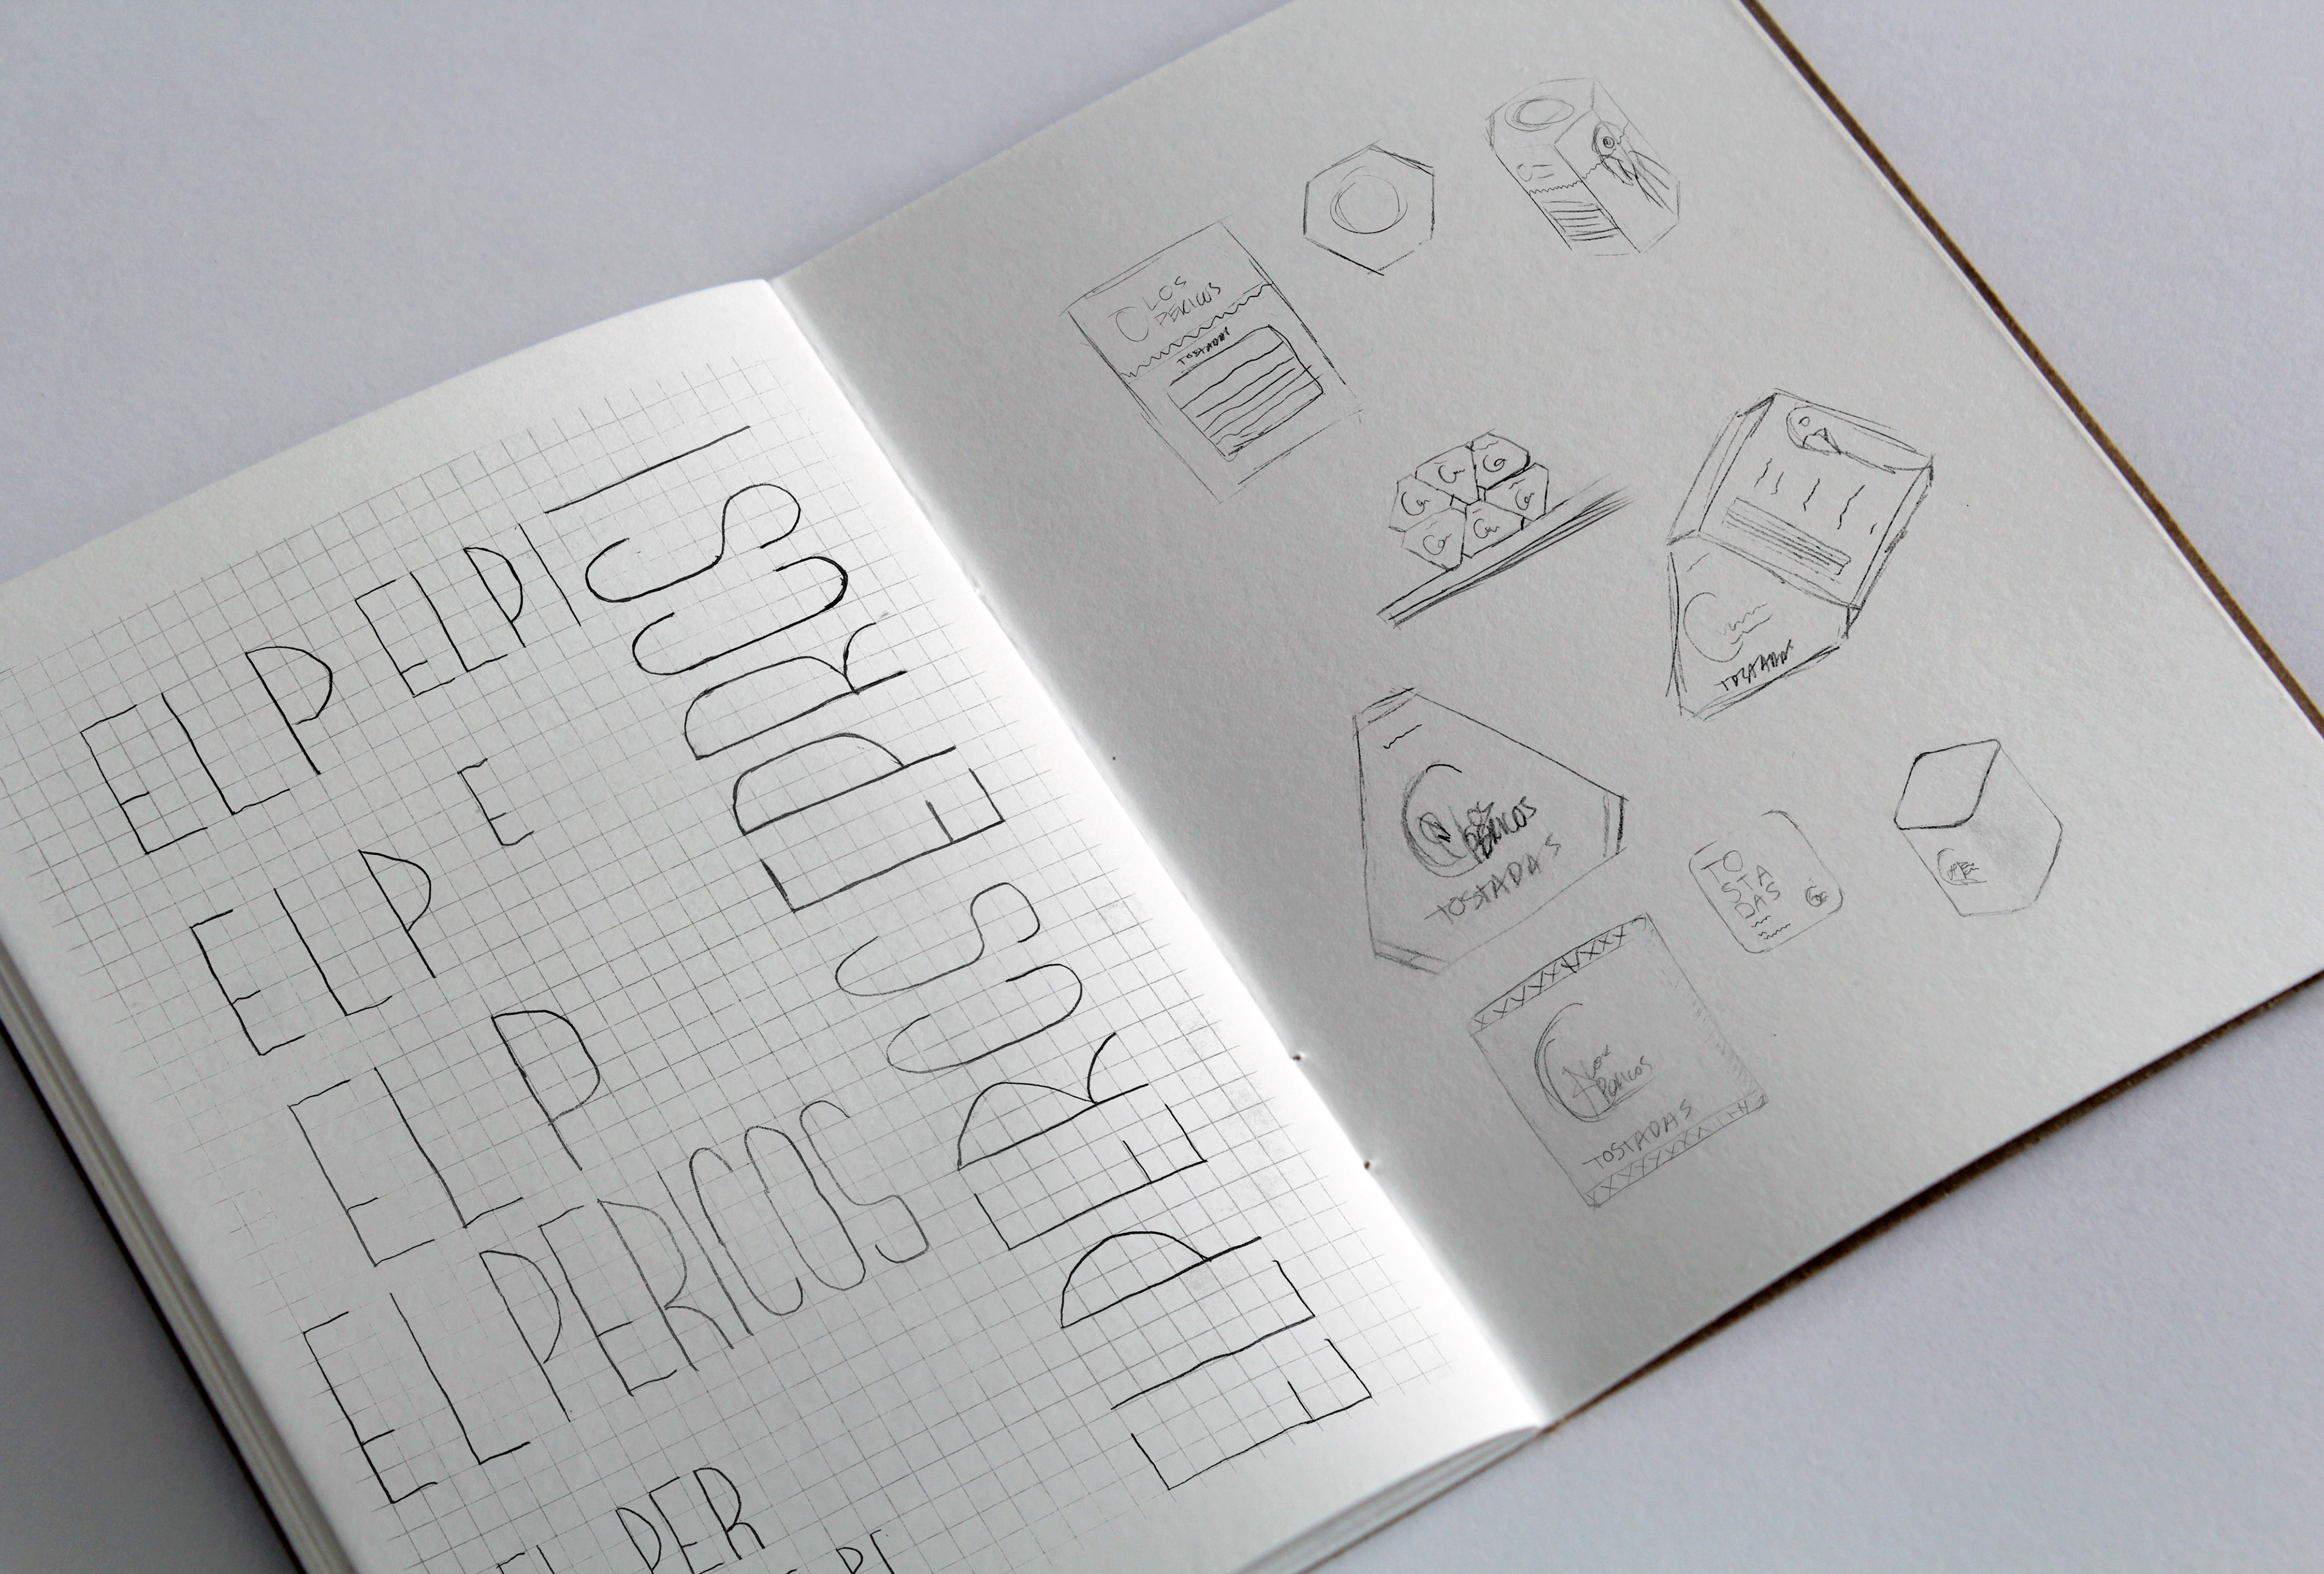 ELP ELPI
ELP E
EL P
EL PERICOS
EL PER
PE
EPRCS
ELPERCS
LOS
PERICOS
TOSTADAS
TOSTADAS
LOS
PERICOS
TOSTADAS
TO
STA
DAS
Los
Pericos
TOSTADAS